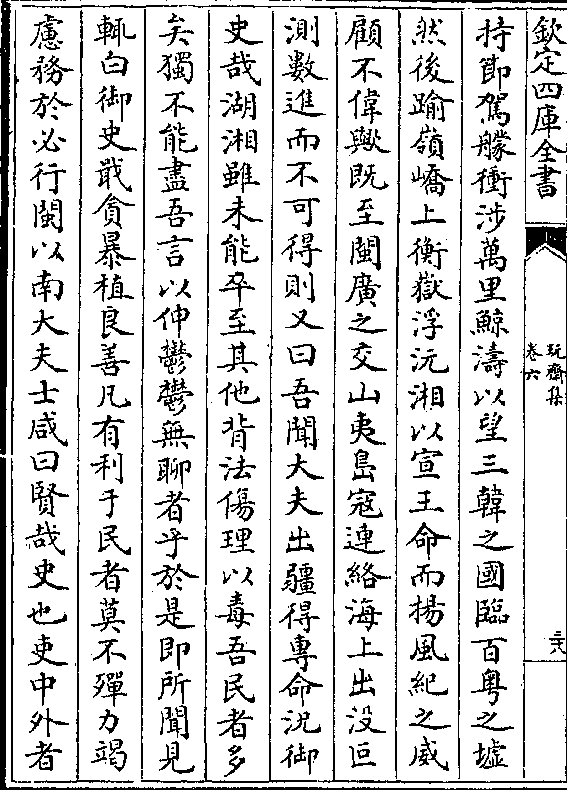 欽定四庫全書
玩齋集
卷六
三六
持節駕艨衝涉萬里鯨濤以望三韓之國臨百粤之墟
然後踰嶺嶠上衡嶽浮沅湘以宣王命而揚風紀之威
顧不偉歟既至閩廣之交山夷島寇連絡海上出没叵
測數進而不可得則又曰吾聞大夫出疆得專命況御
史哉湖湘雖未能卒至其他背法傷理以毒吾民者多
矣獨不能盡吾言以伸鬱鬱無聊者乎於是即所聞見
輒白御史戢貪暴植良善凡有利于民者莫不殫力竭
慮務於必行閩以南大夫士咸曰賢哉史也吏中外者